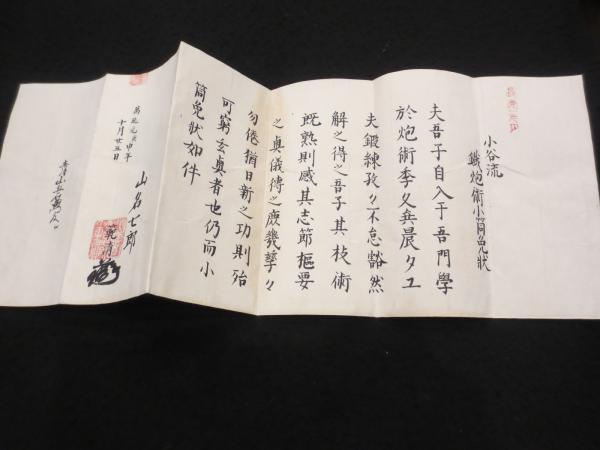 小谷流
鐵炮術小筒免状
夫吾子自入于吾門學
於炮術季久矣晨夕工
夫鍛練孜々不怠豁然
解之得之吾子其技術
既熟則感其志節樞要
之奥儀傳之庶幾孳々
勿倦猶日新之功則殆
可窮玄奥者也仍而小
筒免状如件
萬延元庚申年
十月廿五日
山名七郎